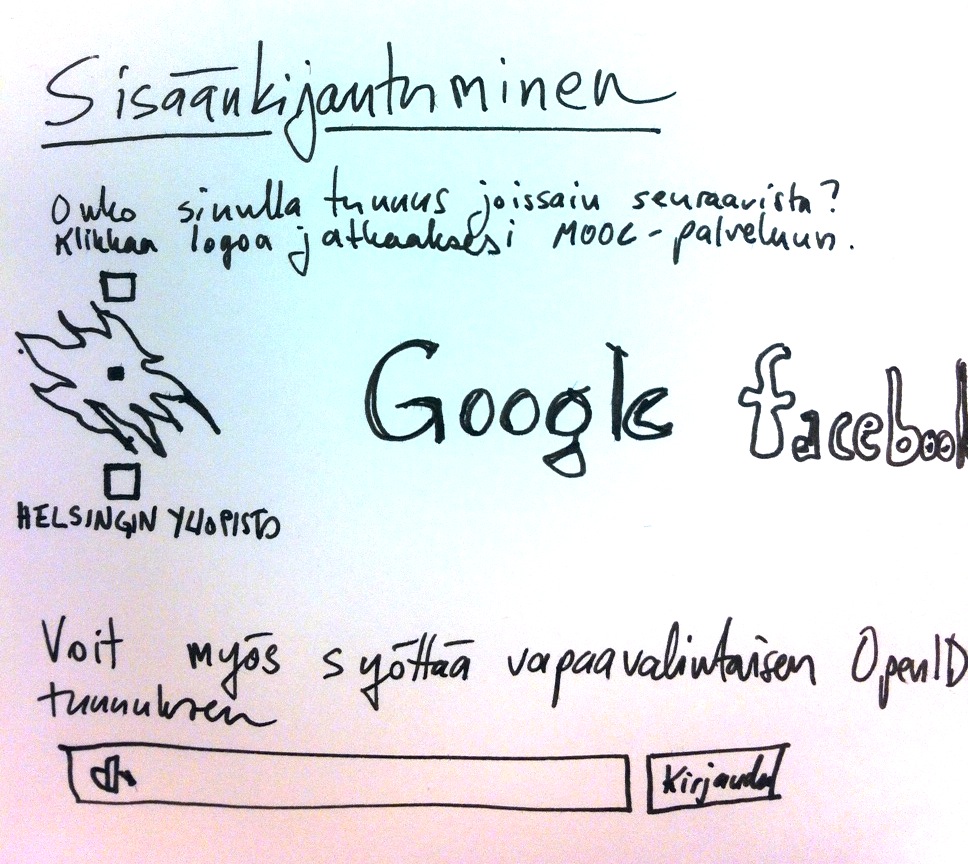 Sisäänkijautuminen
Onko sinulla tunnus joissain seuraavista?
Klikkaa logoa jatkaaksesi MOOC-palveluun.
Google facebook
HELSINGIN YLIOPISTO
Voit myös syöttää vapaavalintaisen OpenID
tunnuksen
Kirjaudu